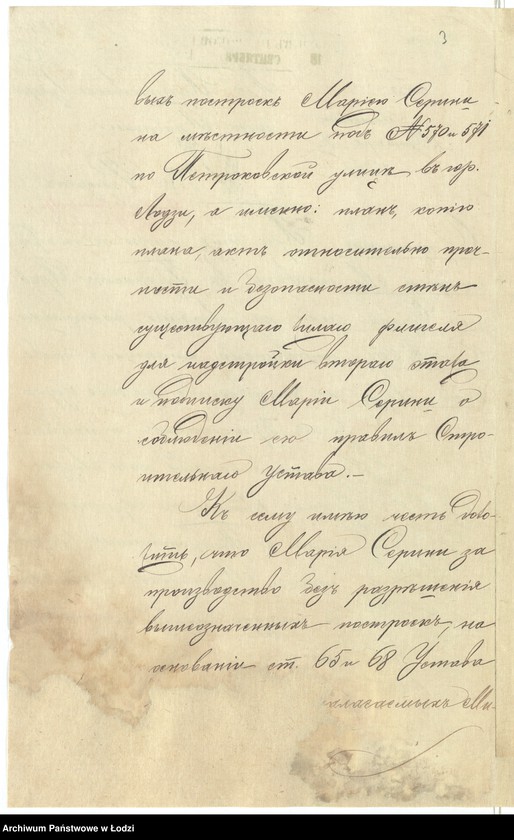 3
18
СЕНТЯБРЯ
выхъ построекъ Маріею Серини
на мѣстности подъ № 570 и 571
по Петроковской улицѣ въ гор.
Лодзи, а именно: планъ, копію
плана, актъ относительно проч-
ности и безопасности стѣнъ
существующаго флигеля
для надстройки втораго этажа
и подписку Маріи Серини о
соблюденіи ею правилъ Стро-
ительнаго Устава.—
Къ сему имѣю честь доло-
жить, что Марія Серини за
производство безъ разрѣшенія
вышеозначенныхъ построекъ, на
основаніи ст. 65 и 68 Устава
налагаемыхъ Ми-
Archiwum Państwowe w Łodzi